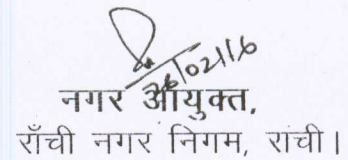 26/02/16
नगर आयुक्त,
राँची नगर निगम, रांची।